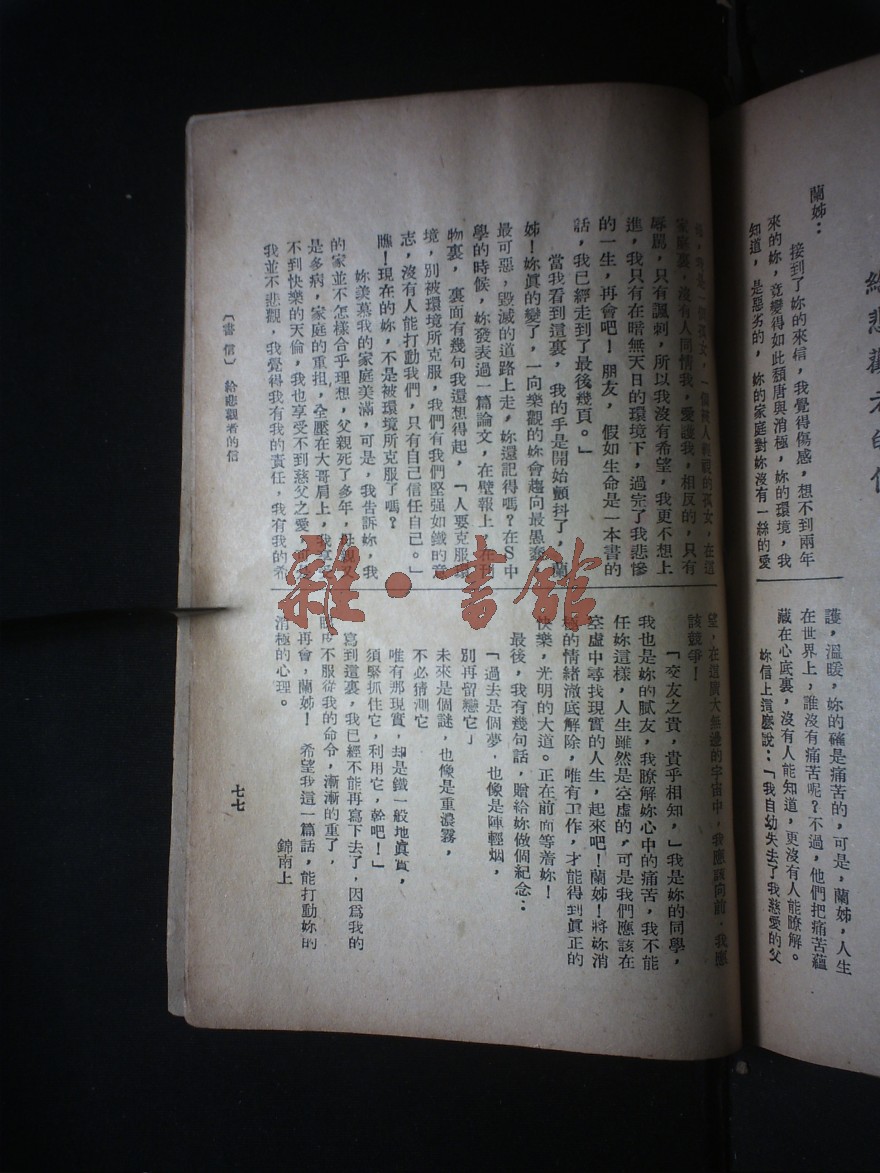 給悲觀者的信
蘭姊：
接到了妳的來信，我覺得傷感，想不到兩年
來的妳，竟變得如此頹唐與消極，妳的環境，我
知道，是惡劣的，妳的家庭對妳沒有一絲的愛
護，溫暖，妳的確是痛苦的，可是，蘭姊，人生
在世界上，誰沒有痛苦呢？不過，他們把痛苦蘊
藏在心底裏，沒有人能知道，更沒有人能瞭解。
妳信上這麽說：「我自幼失去了我慈愛的父
是一個孤女，一個被人 視的孤女，在這
家庭裏，沒有人同情我，愛護我，相反的，只有
辱罵，只有諷刺，所以我沒有希望，我更不想上
進，我只有在暗無天日的環境下，過完了我悲慘
的一生，再會吧！朋友，假如生命是一本書的
話，我已經走到了最後幾頁。」
當我看到這裏，我的手是開始顫抖了，蘭
姊！妳眞的變了，一向樂觀的妳會趨向最愚蠢
最可惡，毀滅的道路上走，妳還記得嗎？在S中
學的時候，妳發表過一篇論文，在壁報上 在刊
物裏，裏面有幾句我還想得起，「人要克服環
境，別被環境所克服，我們有我們堅强如鐵的意
志，沒有人能打動我們，只有自己信任自己。」
瞧！現在的妳，不是被環境所克服了嗎？
妳羡慕我的家庭美滿，可是，我告訴妳，我
的家並不怎樣合乎理想，父親死了多年，母親又
是多病，家庭的重担，全壓在大哥肩上，我享受
不到快樂的天倫，我也享受不到慈父之愛，可
我並不悲觀，我覺得我有我的責任，我有我的希
望，在這廣大無邊的宇宙中，我應該向前，我應
該競爭！
「交友之貴，貴乎相知，」我是妳的同學，
我也是妳的膩友，我瞭解妳心中的痛苦，我不能
任妳這樣，人生雖然是空虛的，可是我們應該在
空虛中尋找現實的人生，起來吧！蘭姊！將妳消
極的情緖澈底解除，唯有工作，才能得到眞正的
快樂，光明的大道。正在前面等着妳！
最後，我有幾句話，贈給妳做個紀念：
「過去是個夢，也像是陣輕烟，
別再留戀它」
未來是個謎，也像是重濃霧，
不必猜測它
唯有那現實，却是鐵一般地眞實，
須緊抓住它，利用它，幹吧！」
寫到這裏，我已經不能再寫下去了，因爲我的
不服從我的命令，漸漸的重了，
再會，蘭姊！希望我這一篇話，能打動妳的
消極的心理。
錦南上
〔書信〕給悲觀者的信
七七
雜·書館